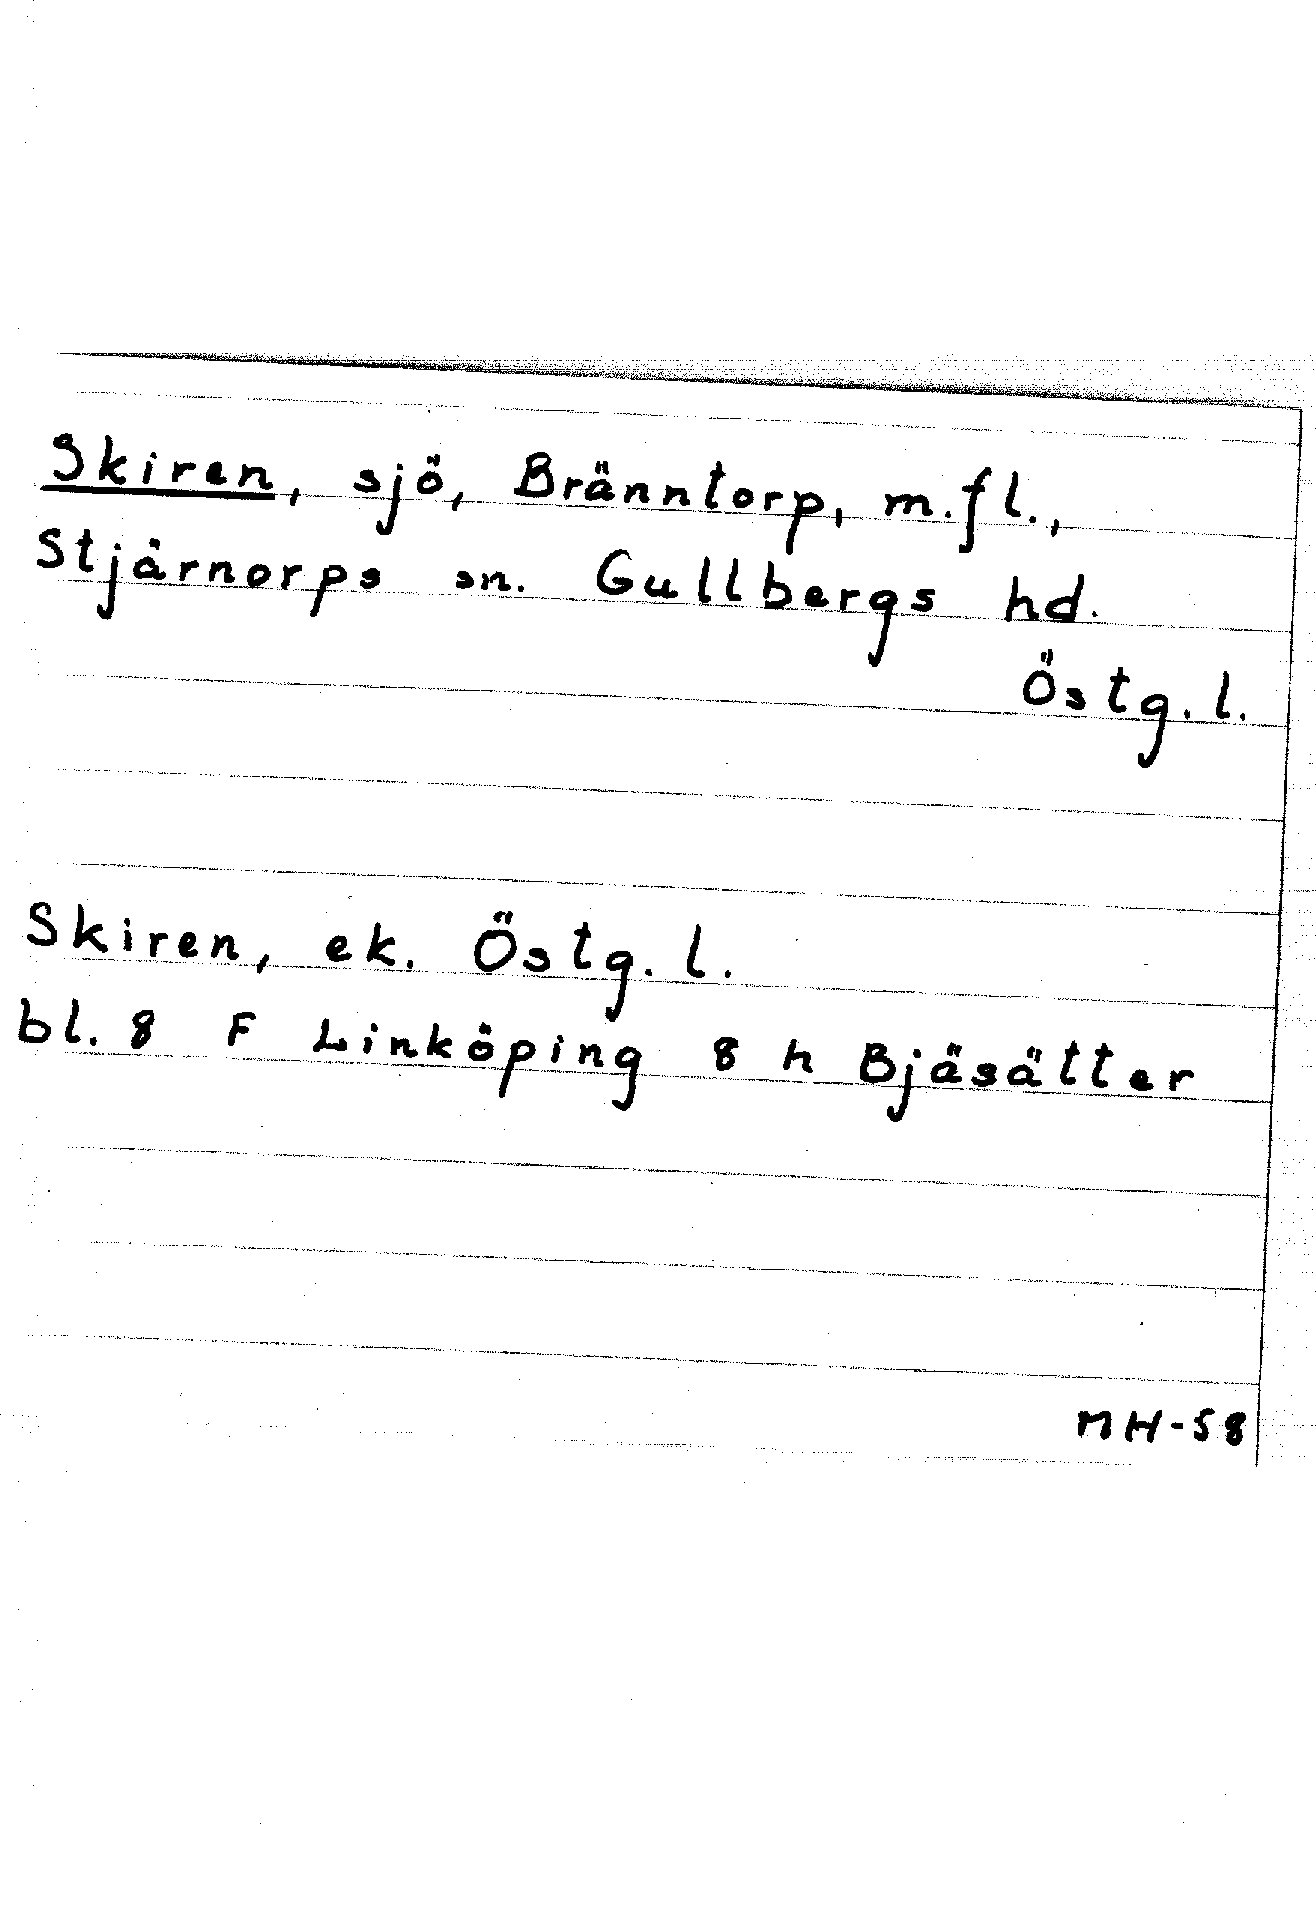 Skiren, sjö, Bränntorp, m.fl.,
Stjärnorps sn. Gullbergs hd.
Östg. l.
Skiren, ek. Östg. l.
bl. 8 F Linköping 8 h Bjäsätter
MH-58